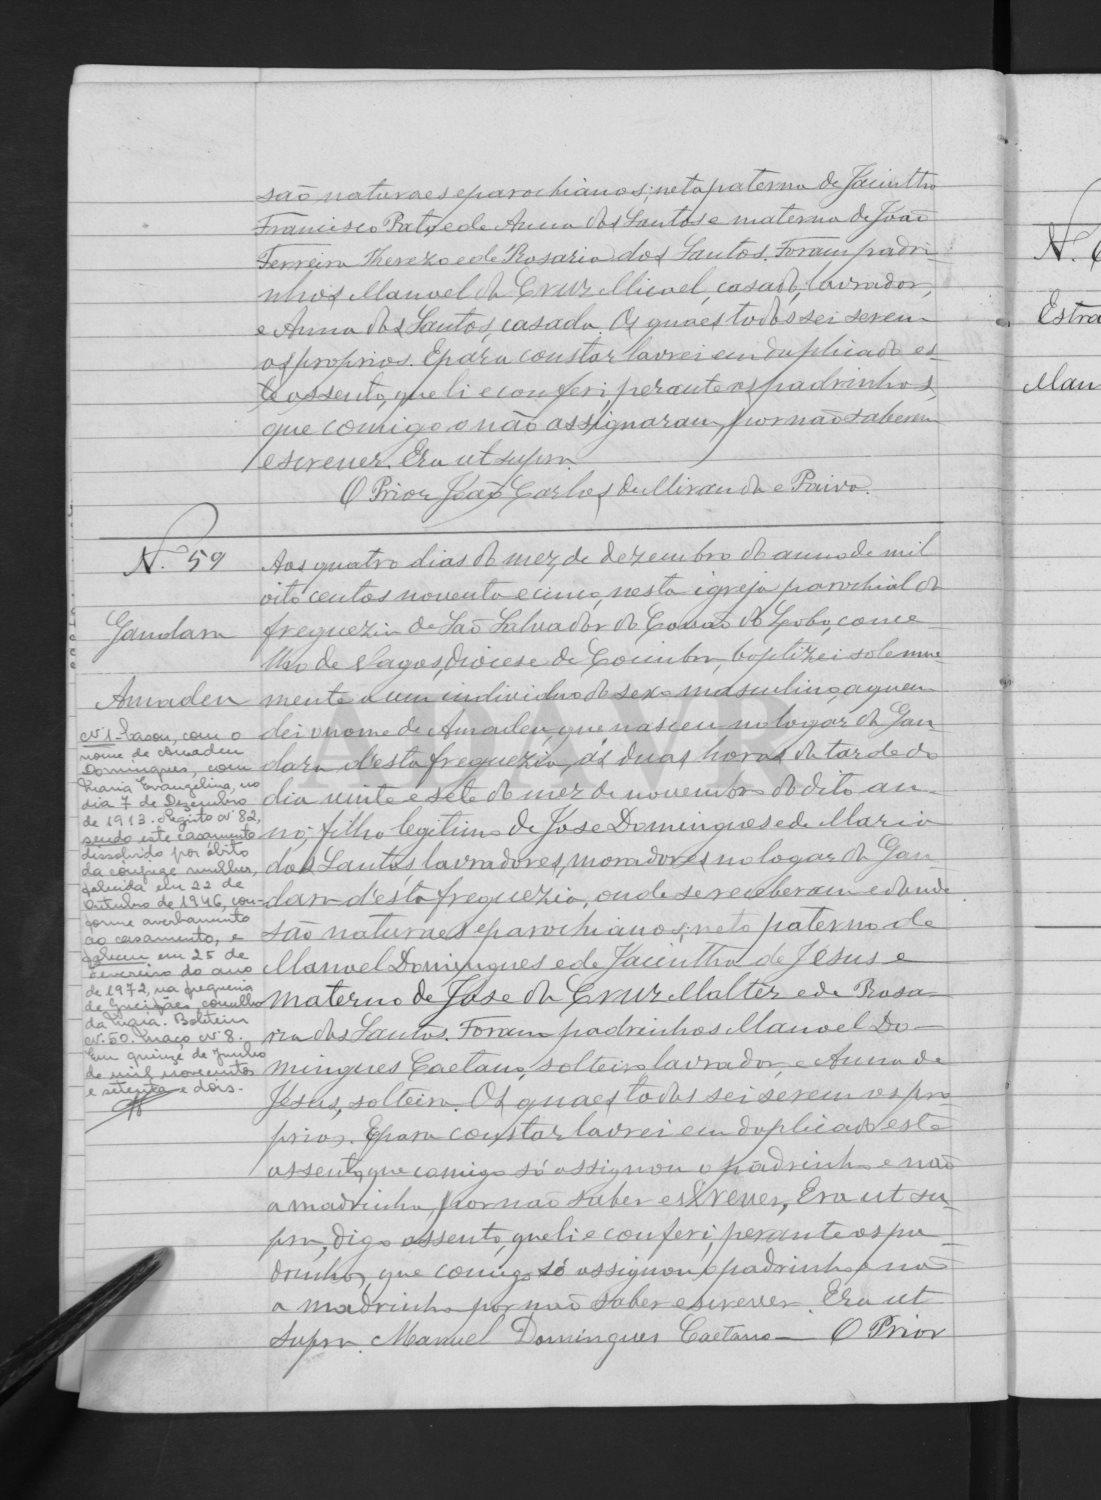 são naturaes e parochianos; neta paterna de Jacintho
Francisco Rato, e de Anna dos Santos e materna de João
Ferreira Therezo e de Rosaria dos Santos. Foram padri-
nhos Manoel da Cruz Micael, casado, lavrador,
e Anna dos Santos, casada. Os quaes todos sei serem
os proprios. E para constar lavrei em duplicado es-
te assento, que li e conferi, perante os padrinhos,
que comigo o não assignaram, por não saberem
escrever. Era ut supra.
O Prior João Carlos de Miranda e Paiva.
N.º 59
Gandara
Amadeu
Aos quatro dias do mez de dezembro do anno de mil
oito centos noventa e cinco, nesta igreja parochial da
freguezia de São Salvador do Covão do Lobo, conce-
lho de Vagos, diocese de Coimbra, baptizei solemne-
mente a um individuo do sexo masculino, a quem
dei o nome de Amadeu, que nasceu no logar da Gan-
dara, d'esta freguezia, ás duas horas da tarde do
dia vinte e sete do mez de novembro do dito an-
no; filho legitimo de Jose Domingues e de Maria
dos Santos, lavradores, moradores no logar da Gan-
dara d'esta freguezia, onde se receberam e donde
são naturaes e parochianos; neto paterno de
Manoel Domingues e de Jacintha de Jesus e
materno de Jose da Cruz Malter e de Rosa-
ria dos Santos. Foram padrinhos Manoel Do-
mingues Caetano, solteiro, lavrador, e Anna de
Jesus, solteira. Os quaes todos sei serem os pro-
prios. E para constar lavrei em duplicado este
assento, que comigo só assignou o padrinho e não
a madrinha por não saber escrever, Era ut su-
pra, digo assento, que li e conferi, perante os pa-
drinhos, que comigo só assignou o padrinho e não
a madrinha por não saber escrever. Era ut
supra. Manuel Domingues Caetano — O Prior
Nº 1. Casou, com o
nome de Amadeu
Domingues, com
Maria Evangelina, no
dia 7 de Dezembro
de 1913. Registo nº 82,
sendo este casamento
dissolvido por óbito
da conjuge mulher,
falecida em 22 de
Outubro de 1946, con-
forme averbamento
ao casamento, e
faleceu em 25 de
Fevereiro do ano
de 1972, na freguesia
de Gueifães, concelho
da Maia. Boletim
nº 50. Maço nº 8.
Em quinze de Junho
de mil novecentos
e setenta e dois.
N.
Estra
Man
ADAVR